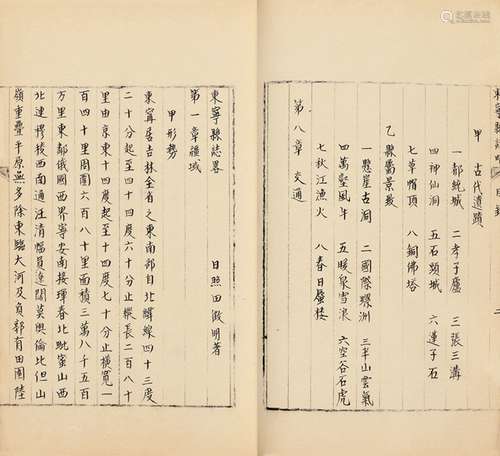 甲 古代遺蹟
一都統城 二孝子廬 三張三溝
四神仙洞 五石頭城 六蓮子石
七草帽頂 八銅佛塔
乙縣屬景致
一懸崖古洞 二國際螺洲 三半山雲氣
四萬壑風牛 五暖泉雪浪 六空谷石虎
七秋江漁火 八春日蜃樓
第八章 交通
東寧縣誌畧 日照田徵明著
第一章疆域
甲形勢
東寧居吉林全省之東南部自北緯線四十三度
二十分起至四十四度六十分止縱長二百八十
里由京東十四度起至十四度七十分止橫寬一
百四十里周圍六百八十里面積三萬八千五百
万里東鄰俄國西界寧安南接琿春北毗蜜山西
北連穆棱西南通汪清幅員遼闊莫與倫比但山
嶺重疊平原無多除東臨大河及負郭有田園陸